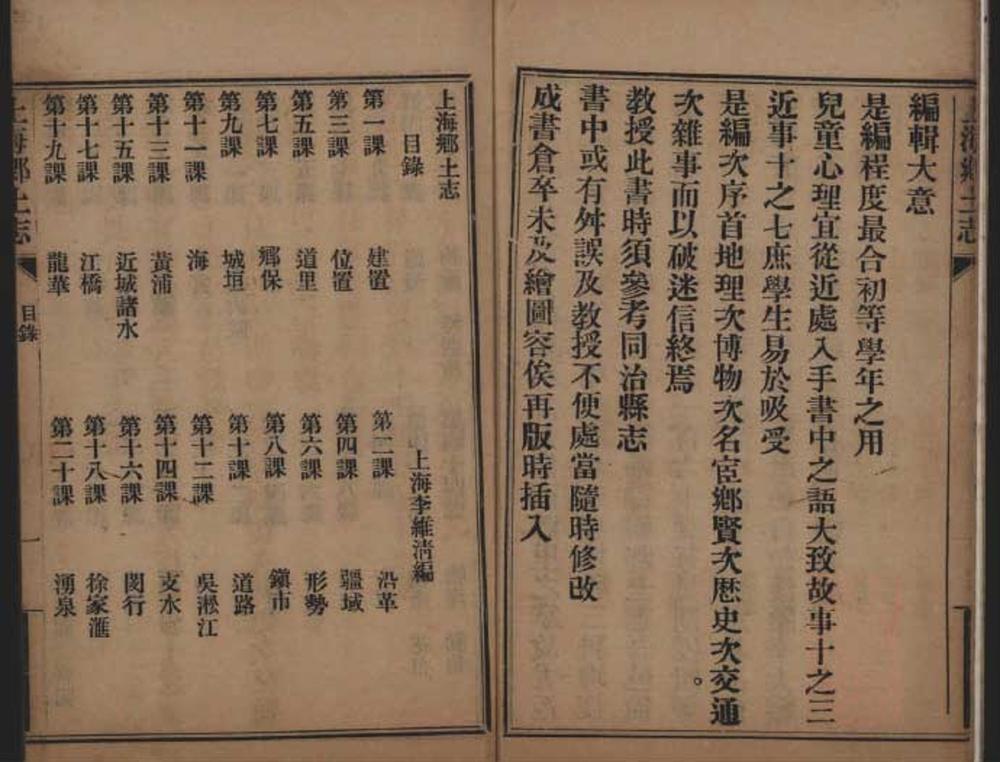 上海鄉土志
編輯大意
是編程度最合初等學年之用
兒童心理宜從近處入手書中之語大致故事十之三
近事十之七庶學生易於吸受
是編次序首地理次博物次名宦鄉賢次歷史次交通
次雜事而以破迷信終焉
教授此書時須參考同治縣志
書中或有舛誤及教授不便處當隨時修改
成書倉卒未及繪圖容俟再版時插入
上海鄉土志
目錄 上海李維淸編
第一課 建置 第二課 沿革
第三課 位置 第四課 疆域
第五課 道里 第六課 形勢
第七課 鄉保 第八課 鎭市
第九課 城垣 第十課 道路
第十一課 海 第十二課 吳淞江
第十三課 黃浦 第十四課 支水
第十五課 近城諸水 第十六課 閔行
第十七課 江橋 第十八課 徐家滙
第十九課 龍華 第二十課 湧泉
上海鄉土志 目錄 一